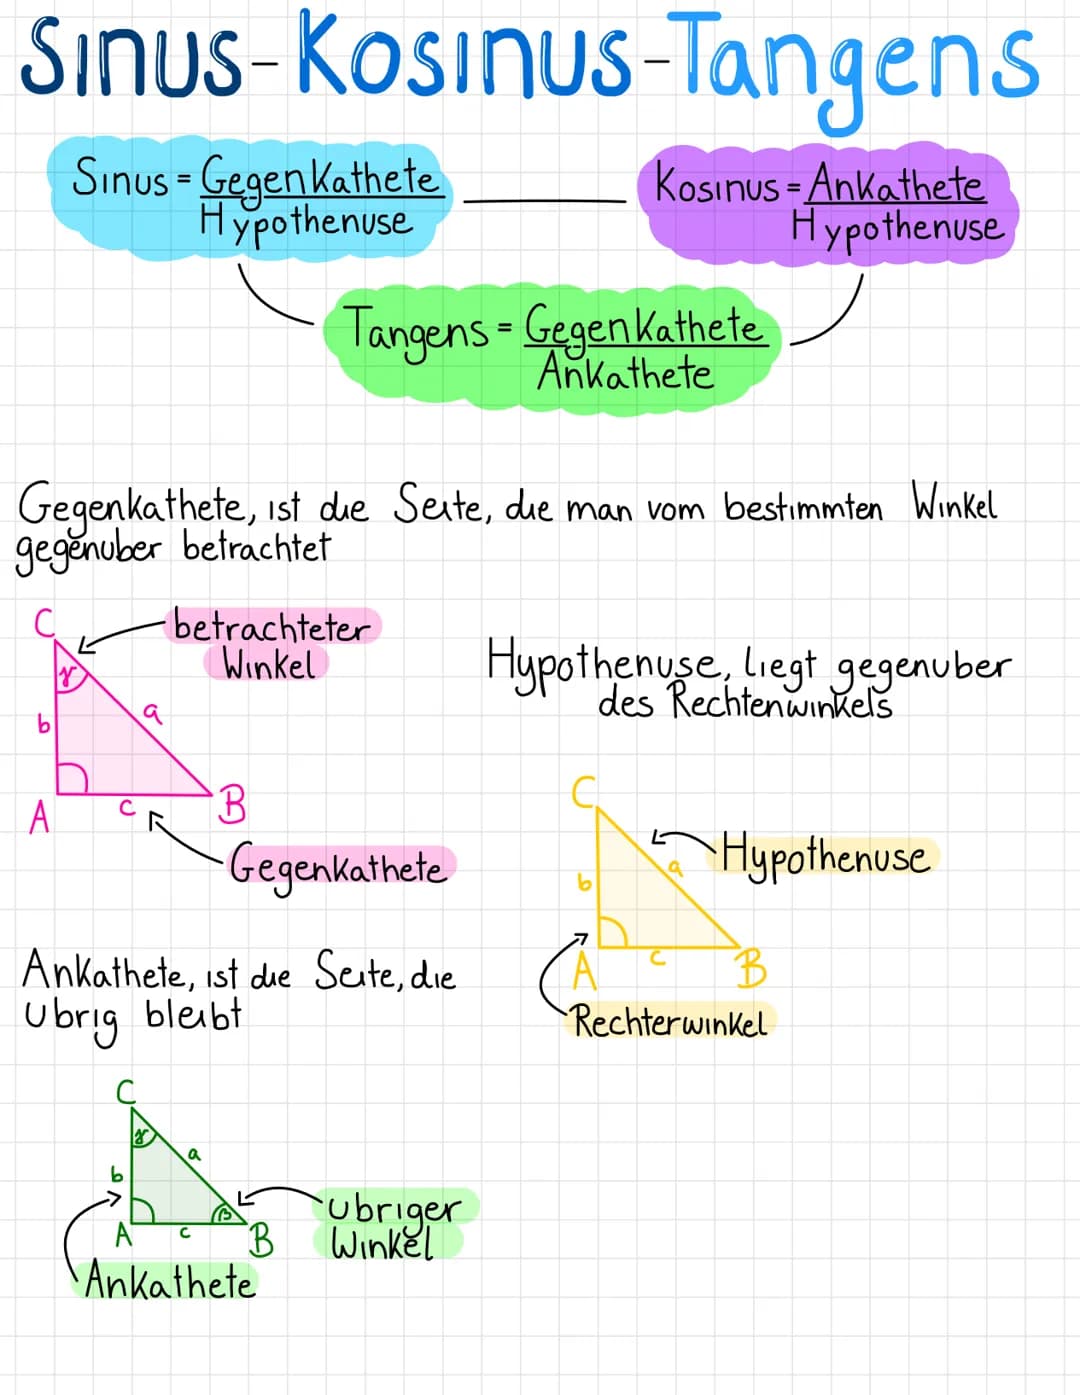 Sinus-Kosinus-Tangens
Sinus = Gegenkathete
Hypothenuse
Kosinus = Ankathete
Hypothenuse
Tangens = Gegenkathete
Ankathete
Gegenkathete, ist die Seite, die man vom bestimmten Winkel
gegenuber betrachtet
betrachteter
Winkel
C
γ
b
a
A
c
B
Gegenkathete
Hypothenuse, liegt gegenuber
des Rechtenwinkels
C
Hypothenuse
b
a
A
c
B
Rechterwinkel
Ankathete, ist die Seite, die
Ubrig bleibt
C
γ
a
b
β
A
c
B
Ubriger
Winkel
Ankathete